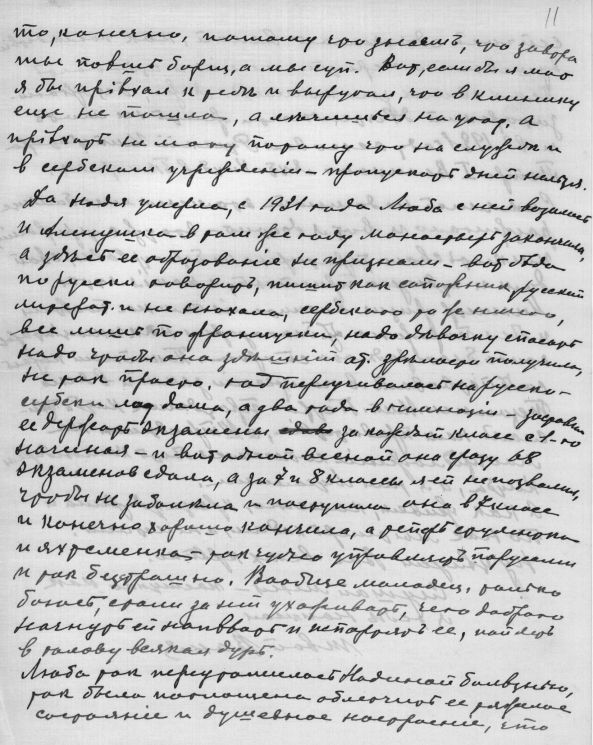 11
то, конечно, потому что знаетъ, что завтра
ты борщ, а мы суп. Вот, если бы я мог
я бы пріѣхал к и выругал, что в клинику
еще не пошла, а лѣчишься на А
пріѣхать не могу потому что на службѣ и
в сербском учрежденіи – пропускать дней нельзя.
Да Надя умерла, с 1931 года Люба с ней возилась
и Аленушка в том же году монастырь закончила,
а здѣсь ее образование не признали – вот бѣда
по русски говорить, пишит как русский
литерат. и не нюхала, сербского тоже ничего,
все лишь по французски, надо дѣвочку спасать
надо чтобы она здѣшній ат. зрѣлости получила,
не так просто, год переучивалась на русско-
сербски лад дома, а два года в гимназіи –
ее держать экзамены за каждый класс с 1-го
начиная – и вот одной весной она сразу 68
экзаменов сдала, а за 7 и 8 классы ей не позволили,
чтобы не заболѣла и поступила она в 7 класс
и конечно хорошо кончила, а теперь
и – так чудно управляеть
и так безстрашно. Вообще молодец, только
боюсь, стали за ней ухаживать, чего доброго
начнуть ей напѣвать и испортят ее, пойдеть
в голову всякая дурь.
Люба так переутомилась Надиной болѣзнью,
так была поглощена облегчить ее тяжелое
состояніе и душевное настроение, что